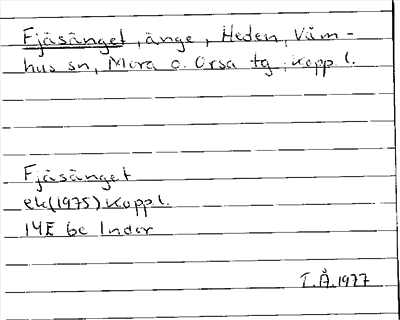 Fjäsänget, änge, Heden, Våm-
hus sn, Mora o. Orsa tg, Kopp l.
Fjäsänget
ek(1975) Kopp l.
14E 6c Indor
T.Å. 1977